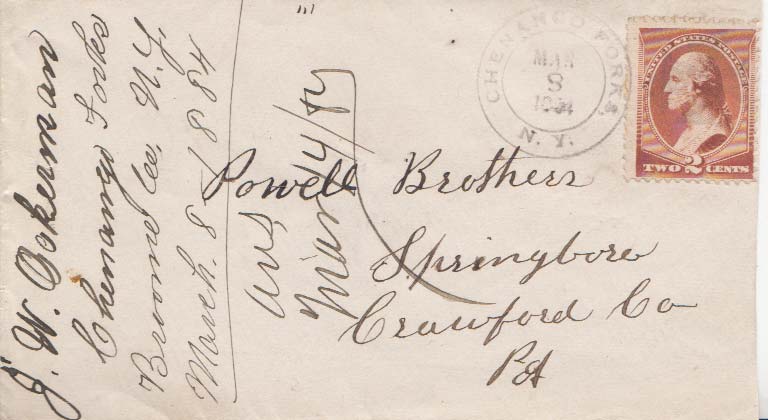 J. W. Ockerman
Chenango Forks
Broome Co. N.Y.
March. 8 - 1884
Ans
Mar 14/84
CHENANGO FORKS,
MAR
8
1884
N. Y.
UNITED STATES POSTAGE
TWO 2 CENTS
Powell Brothers
Springboro
Crawford Co
Pa